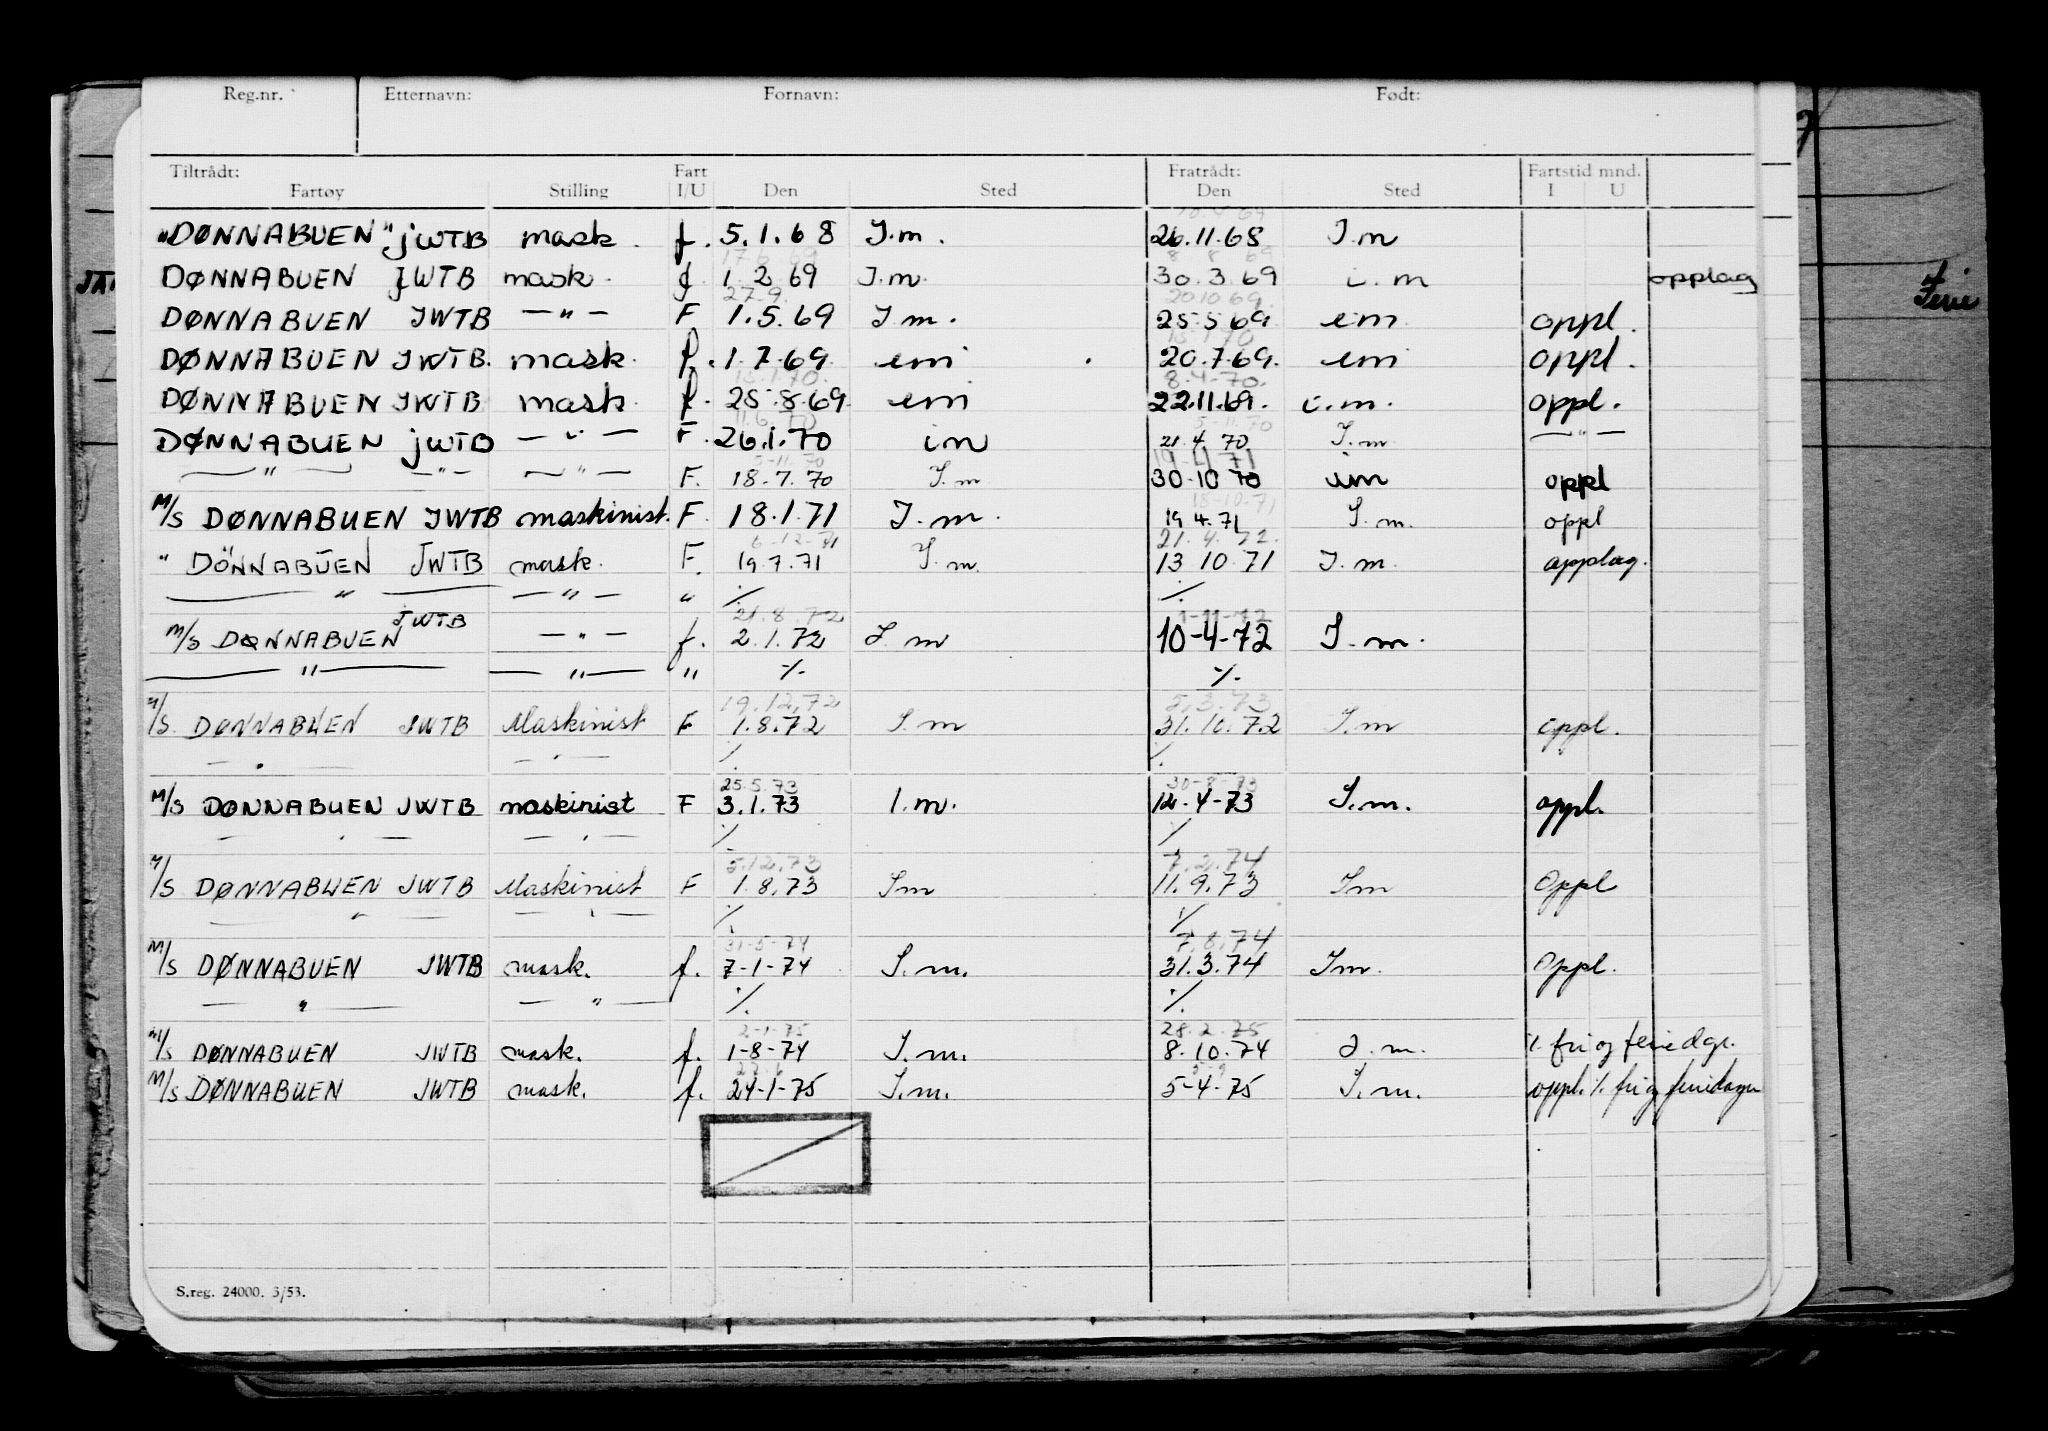 Reg.nr. Etternavn: Fornavn: Født:
Tiltrådt: Fart Fratrådt: Fartstid mnd.
Fartøy Stilling I/U Den Sted Den Sted I U
"DØNNABUEN" JWTB mask. f. 5.1.68 I.m. 26.11.68 I.m
DØNNABUEN JWTB mask. f 1.2 69 I.m. 30.3.69 i.m opplag
DØNNABUEN JWTB — " — F 1.5.69 I.m. 25.5 69 im oppl.
DØNNABUEN JWTB. mask. f. 1.7.69. im 20.7.69. im oppl.
DØNNABUEN JWTB mask f. 25.8.69 im 22.11.69. i.m. oppl.
DØNNABUEN JWTB — " — F. 26.1.70 im 21.4.70 I.m — " —
— " — — " — — " — F. 18.7.70 I.m 30.10 70 im oppl
M/S DØNNABUEN JWTB maskinist. F. 18.1.71 I.m. 19 4.71 I.m. oppl
" DÖNNABUEN JWTB mask. F. 19.7.71 I.m. 13 10.71 I.m. opplag.
— " — — " — " ./. ./.
M/S DØNNABUEN JWTB — " — f. 21.8.72 2.1.72 I.m 1-11-72 10-4-72 I.m.
— " — — " — " ./. ./.
19.12.72 5.3.73
M/S DØNNABUEN JWTB Maskinist F 1.8.72 I.m 31.10.72 I.m oppl.
— " — — " — ./. ./.
25.5.73 30-8-73
M/S DØNNABUEN JWTB maskinist F 3.1.73 I.m. 12-4-73 I.m. oppl.
— " — — " — ./. ./.
5.12.73 7.2.74
M/S DØNNABUEN JWTB Maskinist F 1.8.73 Im 11.9.73 Im Oppl
— " — — " — ./. ./.
31-5-74 7.8.74
M/S DØNNABUEN JWTB mask. f. 7-1-74 I.m. 31.3.74 Im. Oppl.
— " — — " — ./. ./.
2-1-75 28.2.75
M/S DØNNABUEN JWTB mask. f. 1-8-74 I.m. 8.10.74 I.m. ./. fri og feriedgr.
M/S DØNNABUEN JWTB mask. f. 24-1-75 I.m. 5-4-75 I.m. oppl. ./. fri og feriedager
S.reg. 24000. 3/53.
Ferie